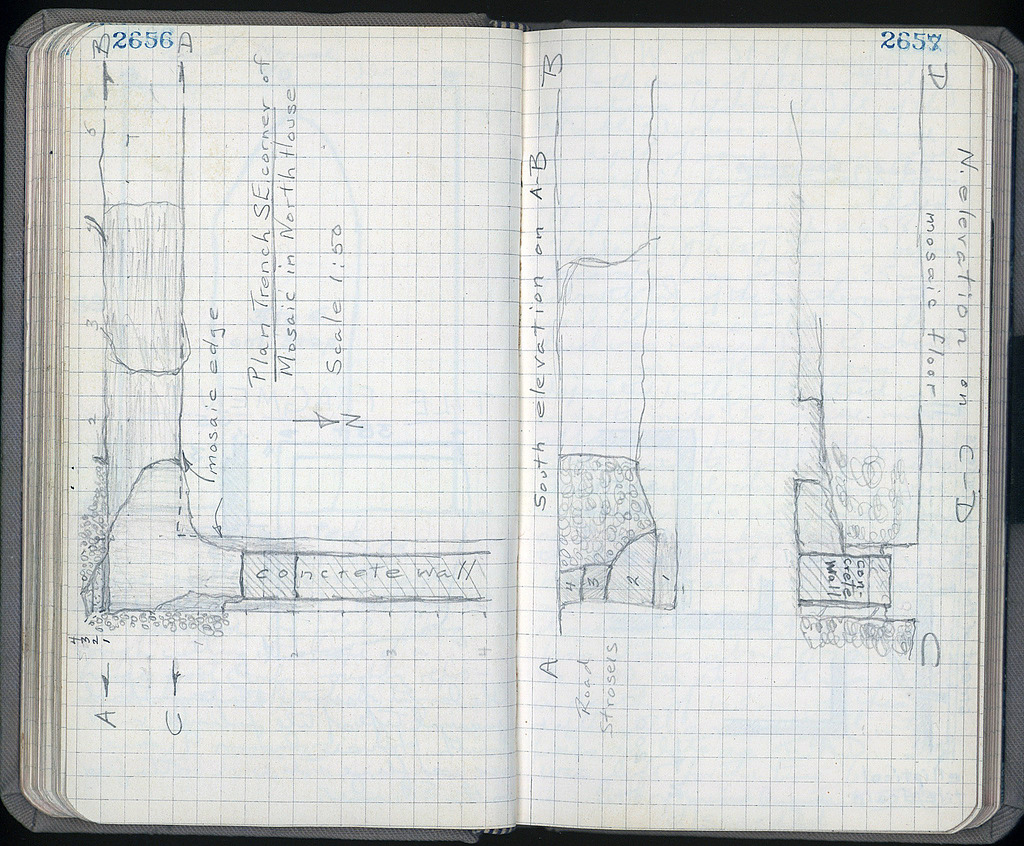 2656
B
A
5
3
2
Plan Trench SE. corner of
Mosaic in North House
Scale 1:50
N
mosaic edge
concrete wall
4
3
2
1
1
2
3
4
A
C
2657
B
South elevation on A-B
4
3
2
1
A
Road
D
N. elevation on C-D
mosaic floor
con-
crete
wall
C